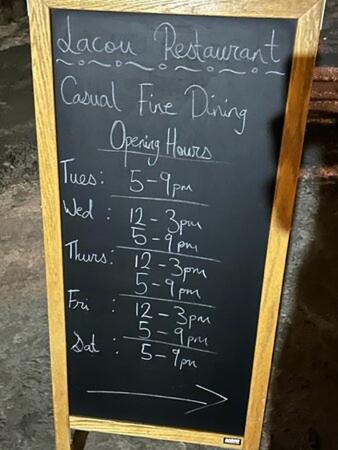 Lacou Restaurant
Casual Fine Dining
Opening Hours
Tues: 5-9pm
Wed : 12-3pm
5-9pm
Thurs: 12-3pm
5-9pm
Fri : 12-3pm
5-9pm
Sat : 5-9pm